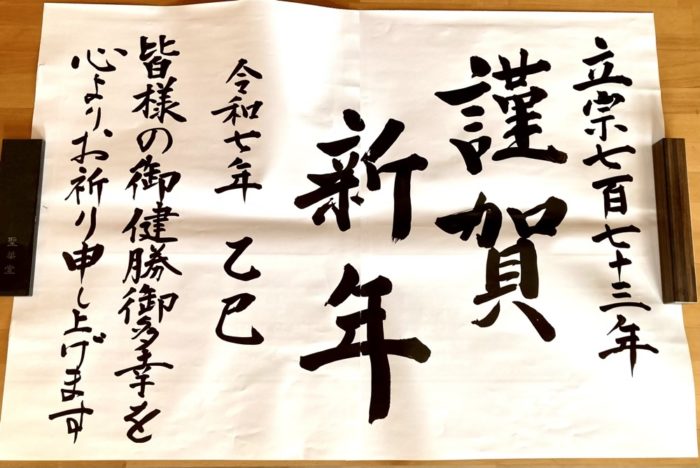 立宗七百七十三年
謹賀
新年
令和七年 乙巳
皆様の御健勝御多幸を
心より、お祈り申し上げます
聖華堂